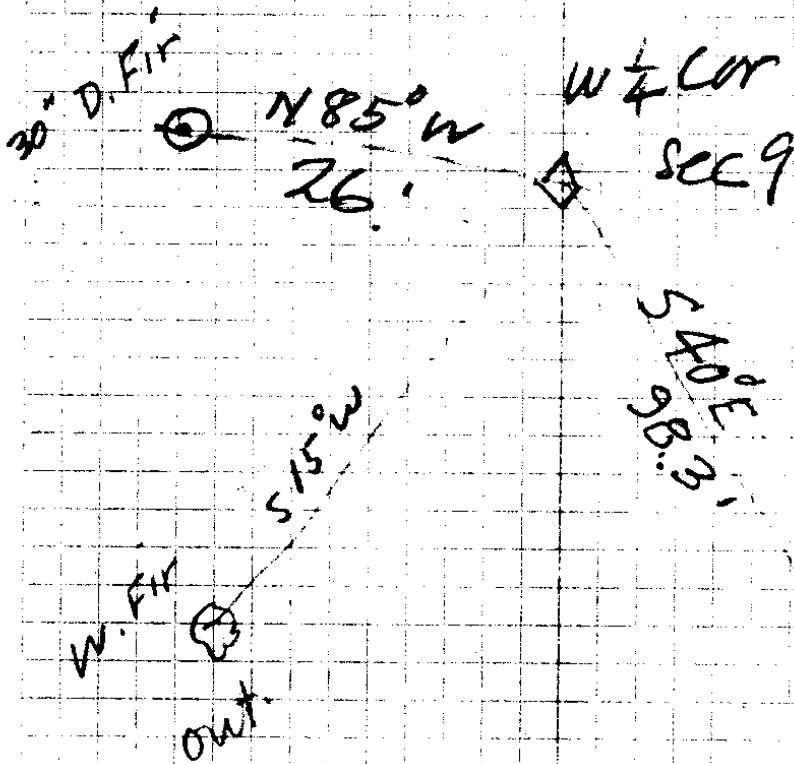 30" D. Fir
N 85° W
26.'
W 1/4 Cor
Sec 9
S 40° E
98.3'
S 15° W
W. Fir
out.